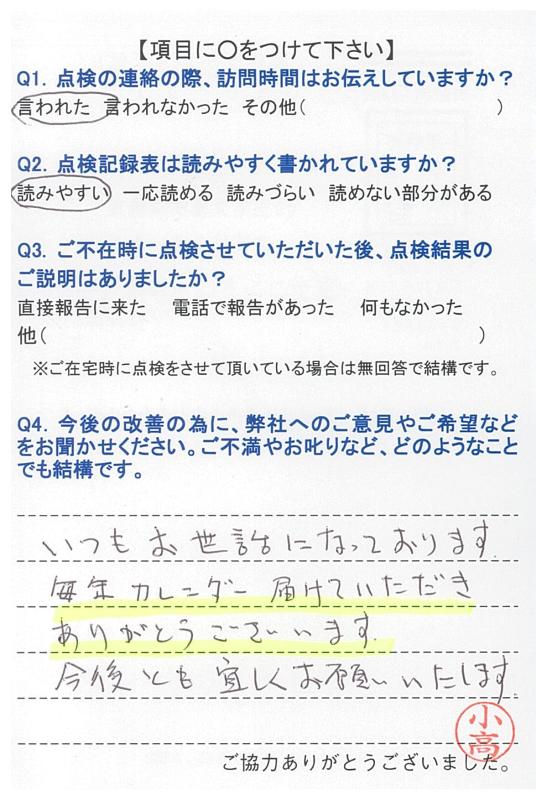 【項目に〇をつけて下さい】
Q1. 点検の連絡の際、訪問時間はお伝えしていますか？
言われた 言われなかった その他( )
Q2. 点検記録表は読みやすく書かれていますか？
読みやすい 一応読める 読みづらい 読めない部分がある
Q3. ご不在時に点検させていただいた後、点検結果の
ご説明はありましたか？
直接報告に来た 電話で報告があった 何もなかった
他( )
※ご在宅時に点検をさせて頂いている場合は無回答で結構です。
Q4. 今後の改善の為に、弊社へのご意見やご希望など
をお聞かせください。ご不満やお叱りなど、どのようなこと
でも結構です。
いつもお世話になっております.
毎年カレンダー届けていただき
ありがとうございます.
今後とも宜しくお願いいたします
小高
ご協力ありがとうございました。